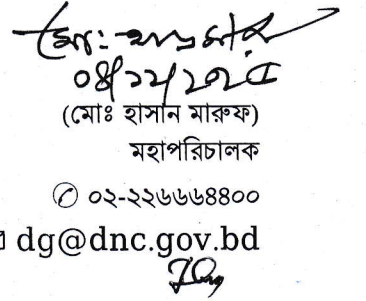 (মোঃ হাসান মারুফ)
মহাপরিচালক
০২-২২৬৬৬৪৪০০
dg@dnc.gov.bd